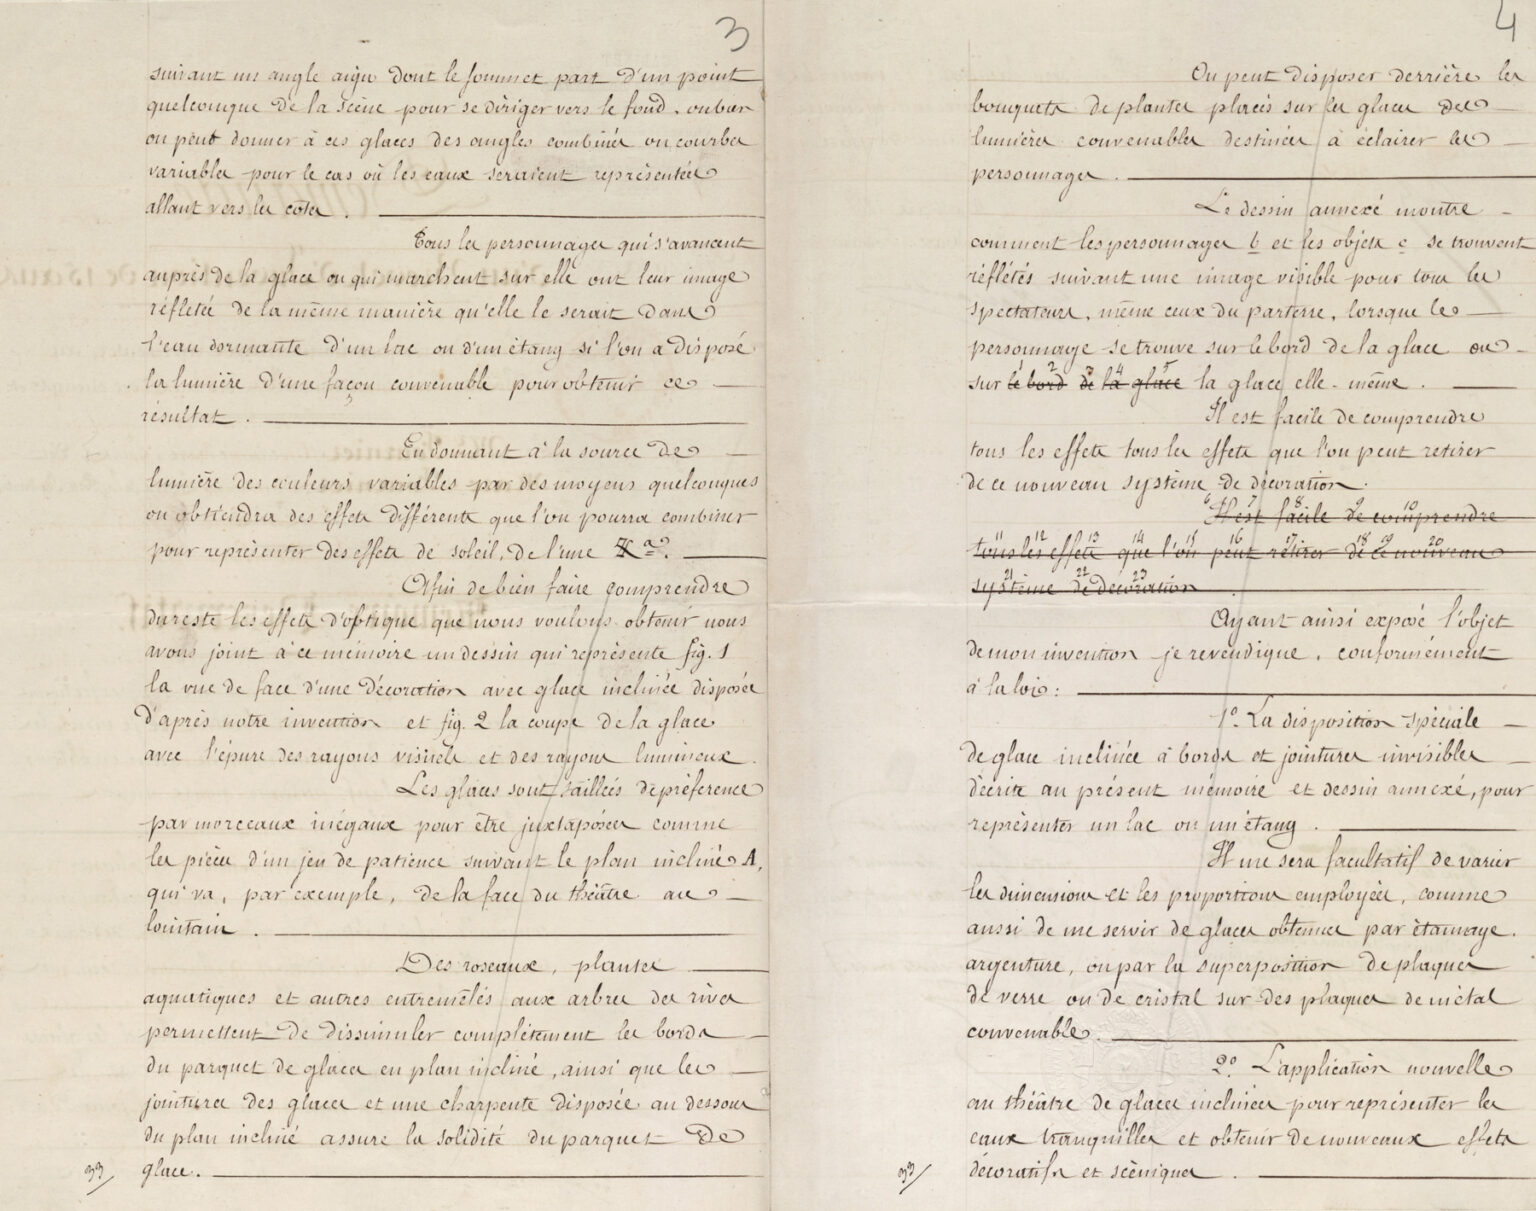 3
suivant un angle aigu dont le sommet part d'un point
quelconque de la scène pour se diriger vers le fond, ou bien
on peut donner à ces glaces des angles combinés ou courbes
variables pour le cas où les eaux seraient représentées
allant vers les côtés.
Tous les personnages qui s'avancent
auprès de la glace ou qui marchent sur elle ont leur image
réfletée de la même manière qu'elle le serait dans
l'eau dormante d'un lac ou d'un étang si l'on a disposé
la lumière d'une façon convenable pour obtenir ce
résultat.
En donnant à la source de
lumière des couleurs variables par des moyens quelconques
on obtiendra des effets différents que l'on pourra combiner
pour représenter des effets de soleil, de lune &a.
Afin de bien faire comprendre
du reste les effets d'optique que nous voulons obtenir nous
avons joint à ce mémoire un dessin qui représente fig. 1
la vue de face d'une décoration avec glace inclinée disposée
d'après notre invention et fig. 2 la coupe de la glace
avec l'épure des rayons visuels et des rayons lumineux.
Les glaces sont taillées de préférence
par morceaux inégaux pour être juxtaposées comme
les pièces d'un jeu de patience suivant le plan incliné A,
qui va, par exemple, de la face du théâtre au
lointain.
Des roseaux, plantes
aquatiques et autres entremêlés aux arbres des rives
permettent de dissimuler complètement les bords
du parquet de glaces en plan incliné, ainsi que les
jointures des glaces et une charpente disposée au dessous
du plan incliné assure la solidité du parquet de
glace.
4
On peut disposer derrière les
bouquets de plantes placés sur les glaces des
lumières convenables destinées à éclairer les
personnages.
Le dessin annexé montre
comment les personnages b et les objets c se trouvent
réflétés suivant une image visible pour tous les
spectateurs, même ceux du parterre, lorsque le
personnage se trouve sur le bord de la glace ou
sur le bord de la glace la glace elle-même.
Il est facile de comprendre
tous les effets tous les effets que l'on peut retirer
de ce nouveau système de décoration.
Il est facile de comprendre
tous les effets que l'on peut retirer de ce nouveau
système de décoration
Ayant ainsi exposé l'objet
de mon invention je revendique, conformément
à la loi:
1º La disposition spéciale
de glace inclinée à bords et jointures invisibles
décrite au présent mémoire et dessin annexé, pour
représenter un lac ou un étang.
Il me sera facultatif de varier
les dimensions et les proportions employées, comme
aussi de me servir de glaces obtenues par étamage,
argenture, ou par la superposition de plaques
de verre ou de cristal sur des plaques de métal
convenable.
2º L'application nouvelle
au théâtre de glaces inclinées pour représenter les
eaux tranquilles et obtenir de nouveaux effets
décoratifs et scèniques.